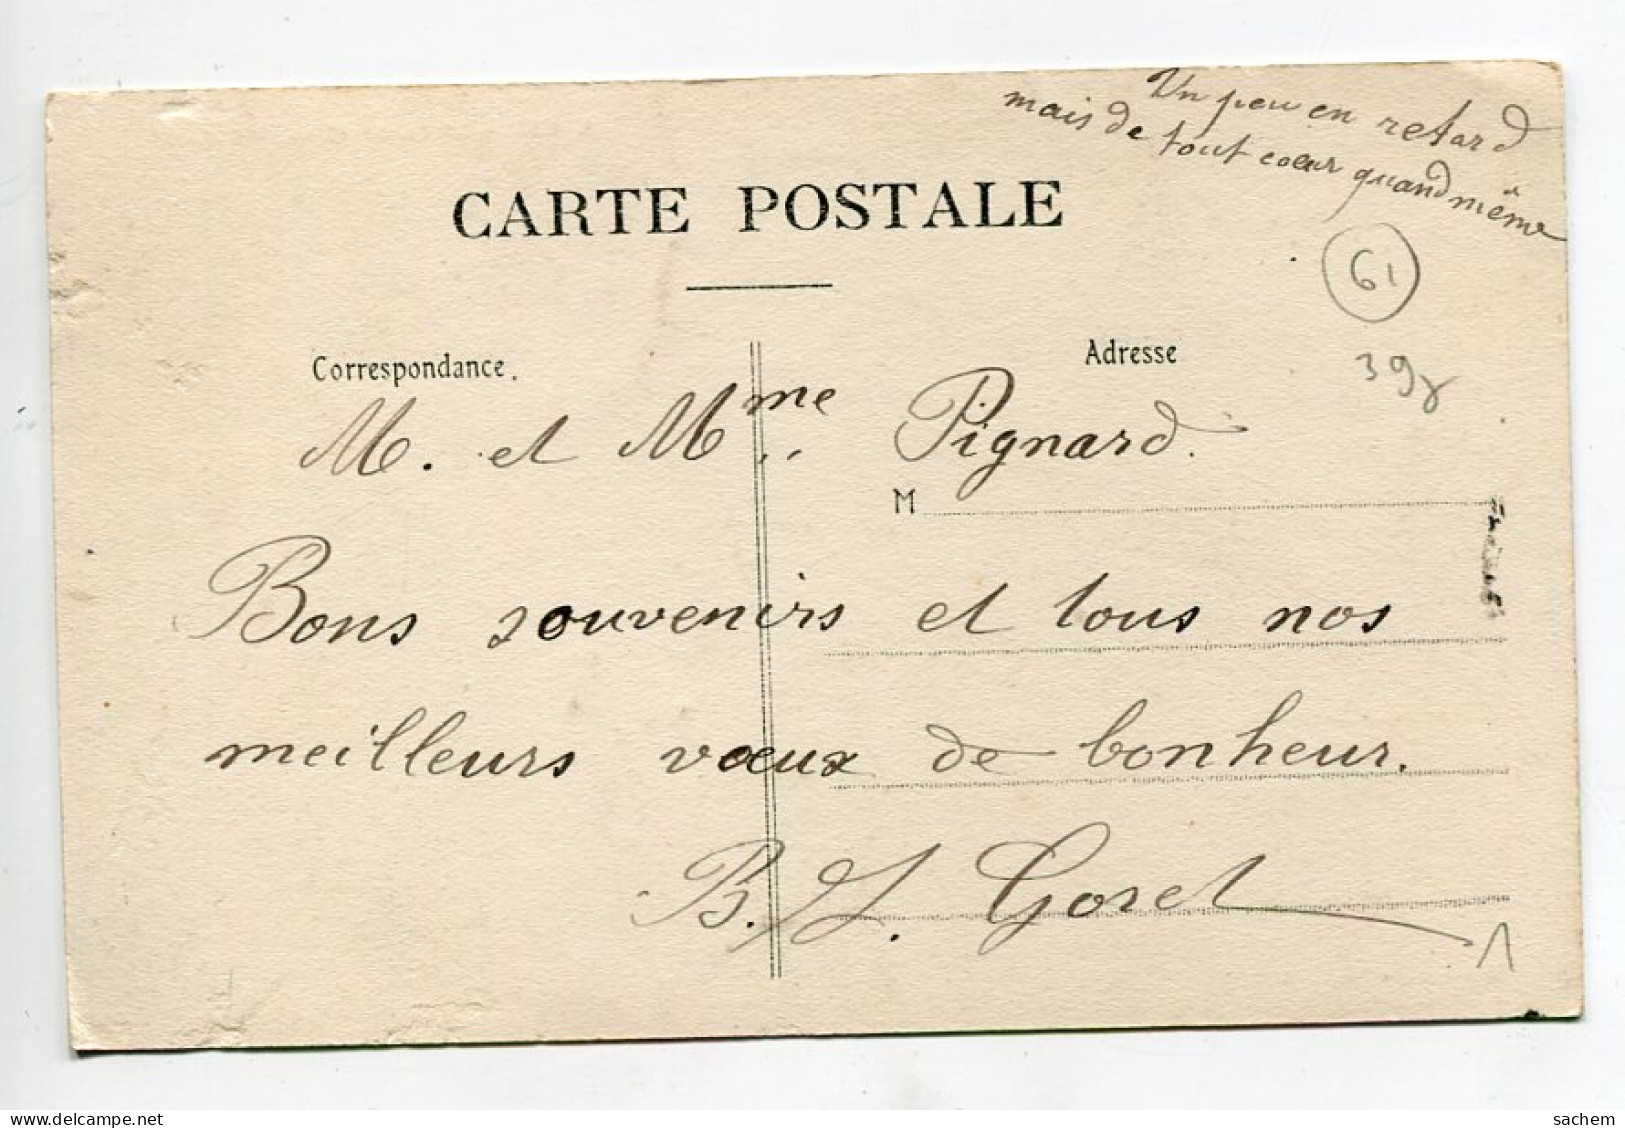 Un peu en retard
mais de tout cœur quand même
CARTE POSTALE
61
Correspondance.
Adresse
39
M. et Mme Pignard.
M
Bons souvenirs et tous nos
meilleurs vœux de bonheur.
B. J. Goret
delcampe.net
sachem